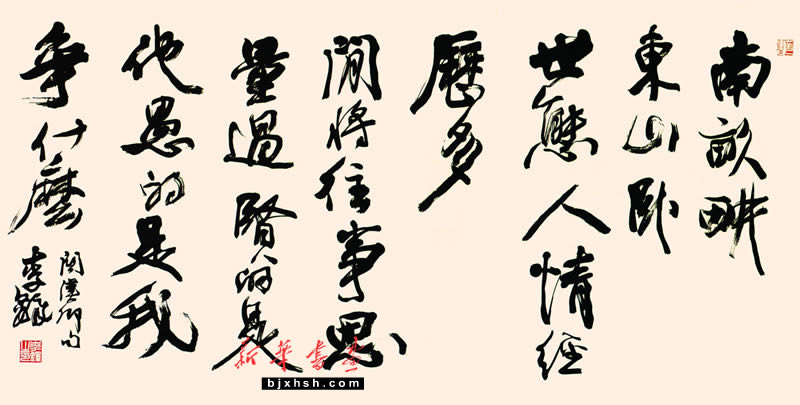 南畝畊
東山卧
世態人情經
歷多
閒將往事思
量過賢的是
他愚的是我
争什麼
關漢卿句
李鐸
新華書畫
bjxhsh.com